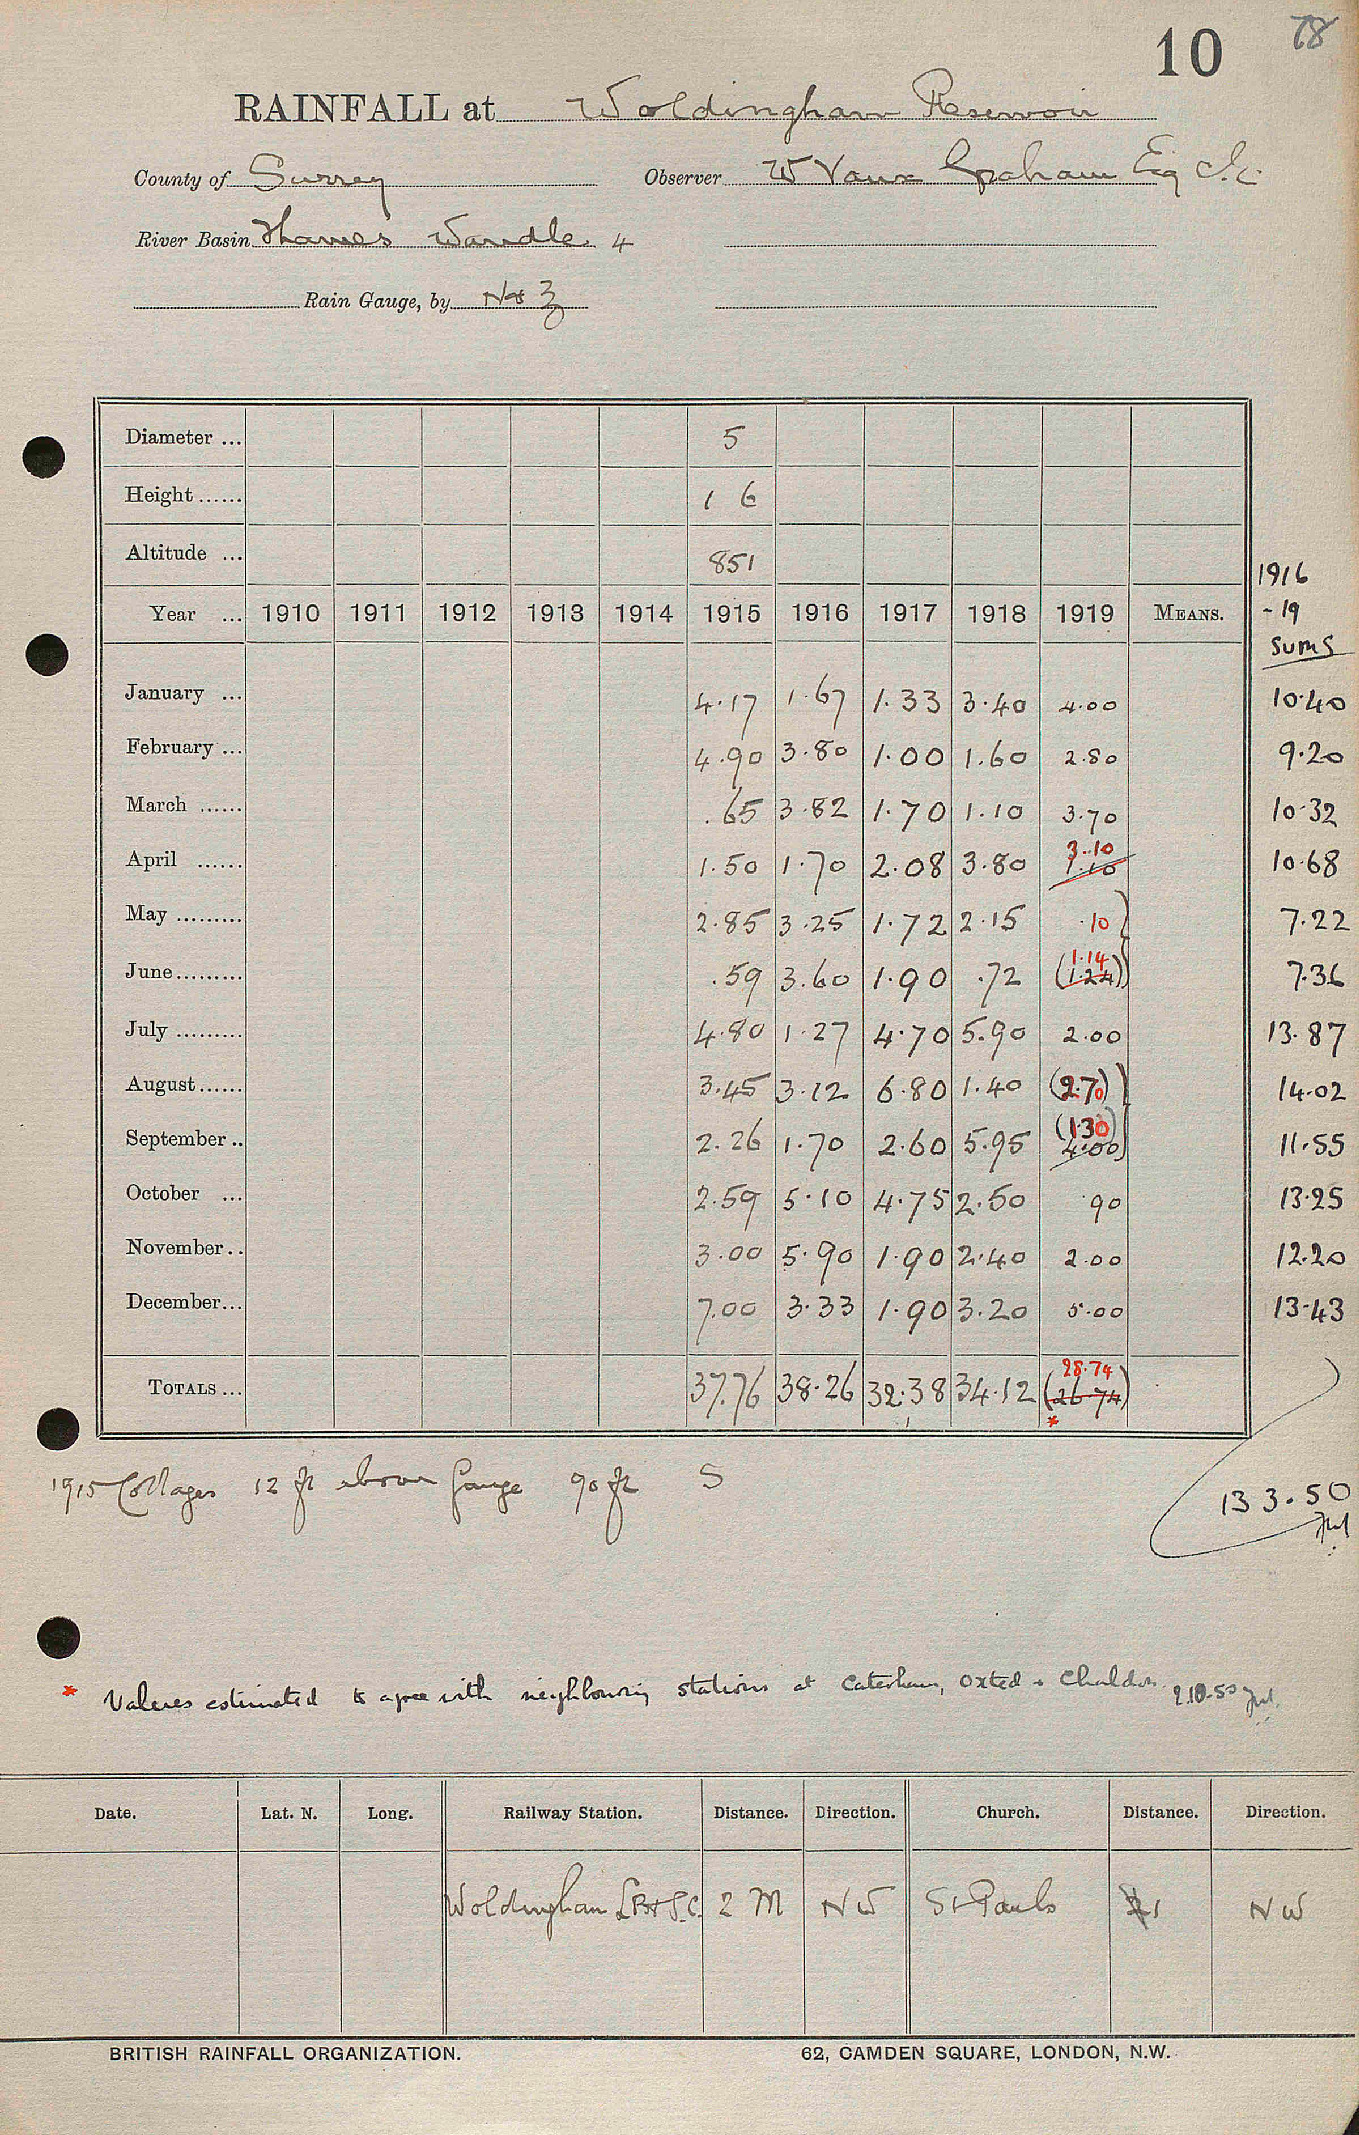 10 78
RAINFALL at Woldingham Reservoir
County of Surrey Observer W Vaux Graham Esq C.E.
River Basin Thames Wandle 4
Rain Gauge, by N & Z
Diameter ... 5
Height ...... 1 6
Altitude ... 851
1916
Year ... 1910 1911 1912 1913 1914 1915 1916 1917 1918 1919 MEANS. -19
sums
January ... 4.17 1.67 1.33 3.40 4.00 10.40
February ... 4.90 3.80 1.00 1.60 2.80 9.20
March ...... .65 3.82 1.70 1.10 3.70 10.32
3.10
April ...... 1.50 1.70 2.08 3.80 1.10 10.68
May ......... 2.85 3.25 1.72 2.15 .10 } 7.22
1.14
June ......... .59 3.60 1.90 .72 (1.24) } 7.36
July ......... 4.80 1.27 4.70 5.90 2.00 13.87
August ...... 3.45 3.12 6.80 1.40 (2.70) } 14.02
(1.30)
September .. 2.26 1.70 2.60 5.95 4.00 } 11.55
October ... 2.59 5.10 4.75 2.50 .90 13.25
November .. 3.00 5.90 1.90 2.40 2.00 12.20
December ... 7.00 3.33 1.90 3.20 5.00 13.43
28.74
TOTALS ... 37.76 38.26 32.38 34.12 (26.74)
*
1915 Cottages 12 ft above Gauge 90 ft S
133.50
* Values estimated to agree with neighbouring stations at Caterham, Oxted + Chaldon.
Date. Lat. N. Long. Railway Station. Distance. Direction. Church. Distance. Direction.
Woldingham LB&S.C. 2 M NW St Pauls 1 NW
BRITISH RAINFALL ORGANIZATION. 62, CAMDEN SQUARE, LONDON, N.W.